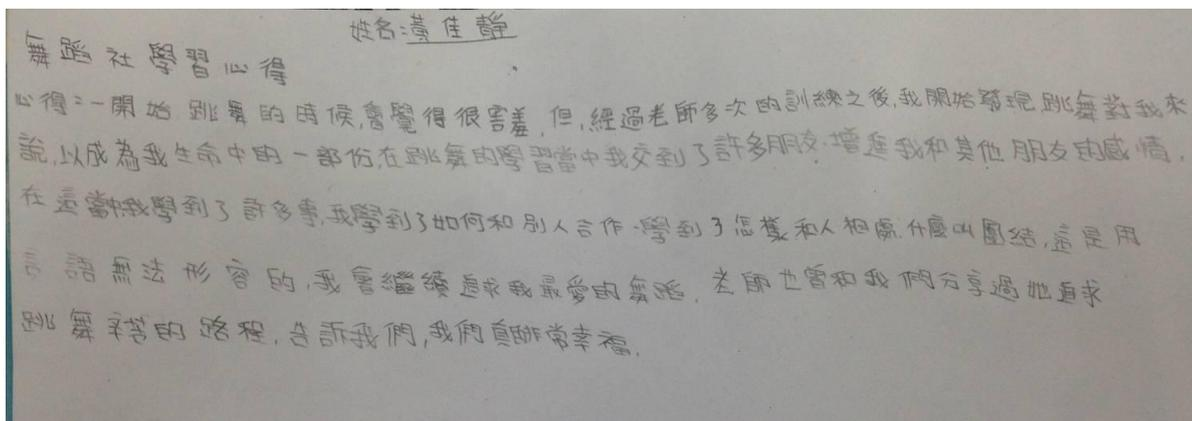 姓名:黃佳靜
舞蹈社學習心得
心得:一開始跳舞的時候,會覺得很害羞,但,經過老師多次的訓練之後,我開始發現跳舞對我來
說,以成為我生命中的一部份在跳舞的學習當中我交到了許多朋友.增進我和其他朋友的感情,
在這當中我學到了許多事,我學到了如何和別人合作.學到了怎樣和人相處.什麼叫團結,這是用
言語無法形容的,我會繼續追求我最愛的舞蹈,老師也曾和我們分享過她追求
跳舞辛苦的路程,告訴我們,我們真的非常幸福.